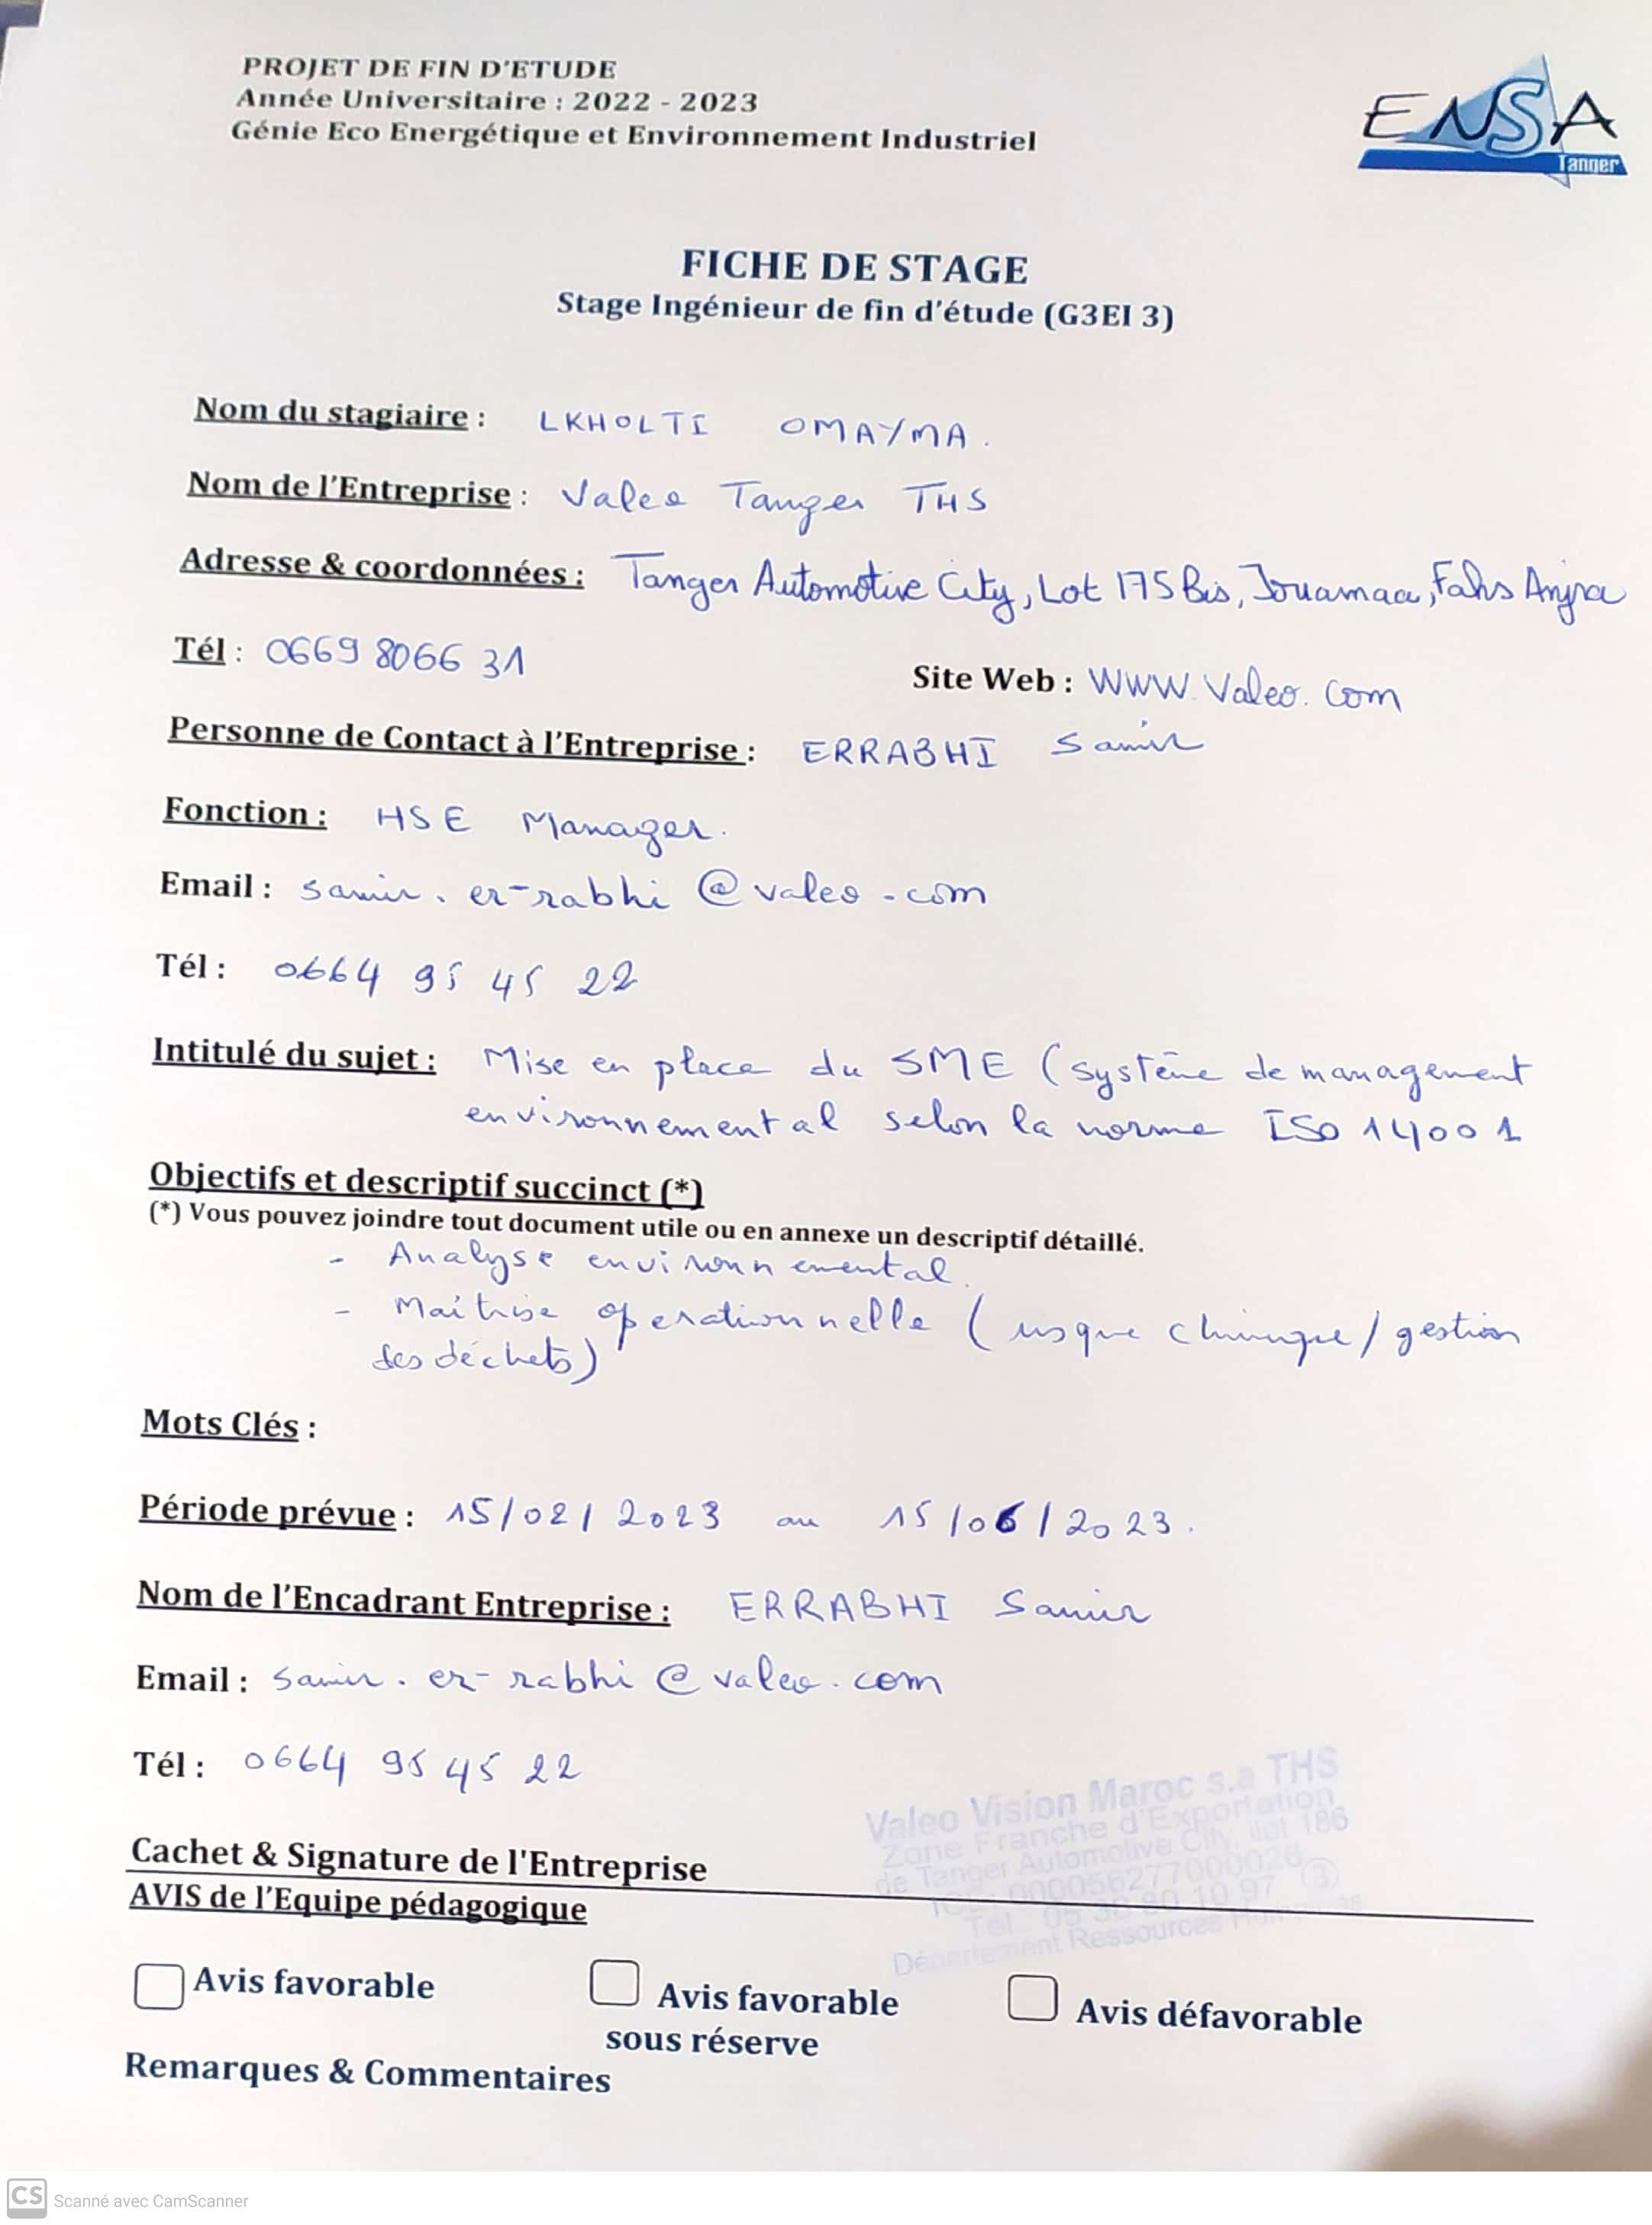 PROJET DE FIN D'ETUDE
Année Universitaire : 2022 - 2023
Génie Eco Energétique et Environnement Industriel
ENSA
Tanger
FICHE DE STAGE
Stage Ingénieur de fin d'étude (G3EI 3)
Nom du stagiaire : LKHOLTI OMAYMA.
Nom de l'Entreprise : Valeo Tanger THS
Adresse & coordonnées : Tanger Automotive City, Lot 175 Bis, Jouamaa, Fahs Anjra
Tél : 0669 8066 31
Site Web : WWW.Valeo.com
Personne de Contact à l'Entreprise : ERRABHI Samir
Fonction : HSE Manager.
Email : samir.er-rabhi@valeo.com
Tél : 0664 95 45 22
Intitulé du sujet : Mise en place du SME (système de management
environnemental selon la norme ISO 14001
Objectifs et descriptif succinct (*)
(*) Vous pouvez joindre tout document utile ou en annexe un descriptif détaillé.
- Analyse environnemental.
- Maîtrise operationnelle (risque chimique / gestion
des déchets)
Mots Clés :
Période prévue : 15/02/2023 au 15/06/2023.
Nom de l'Encadrant Entreprise : ERRABHI Samir
Email : samir.er-rabhi@valeo.com
Tél : 0664 95 45 22
Valeo Vision Maroc s.a THS
Zone Franche d'Exportation
de Tanger Automotive City, ilot 186
000056277000026
Tél 05 30 80 10 97 (3)
Département Ressources Humaines
Cachet & Signature de l'Entreprise
AVIS de l'Equipe pédagogique
Avis favorable
Avis favorable
sous réserve
Avis défavorable
Remarques & Commentaires
CS Scanné avec CamScanner